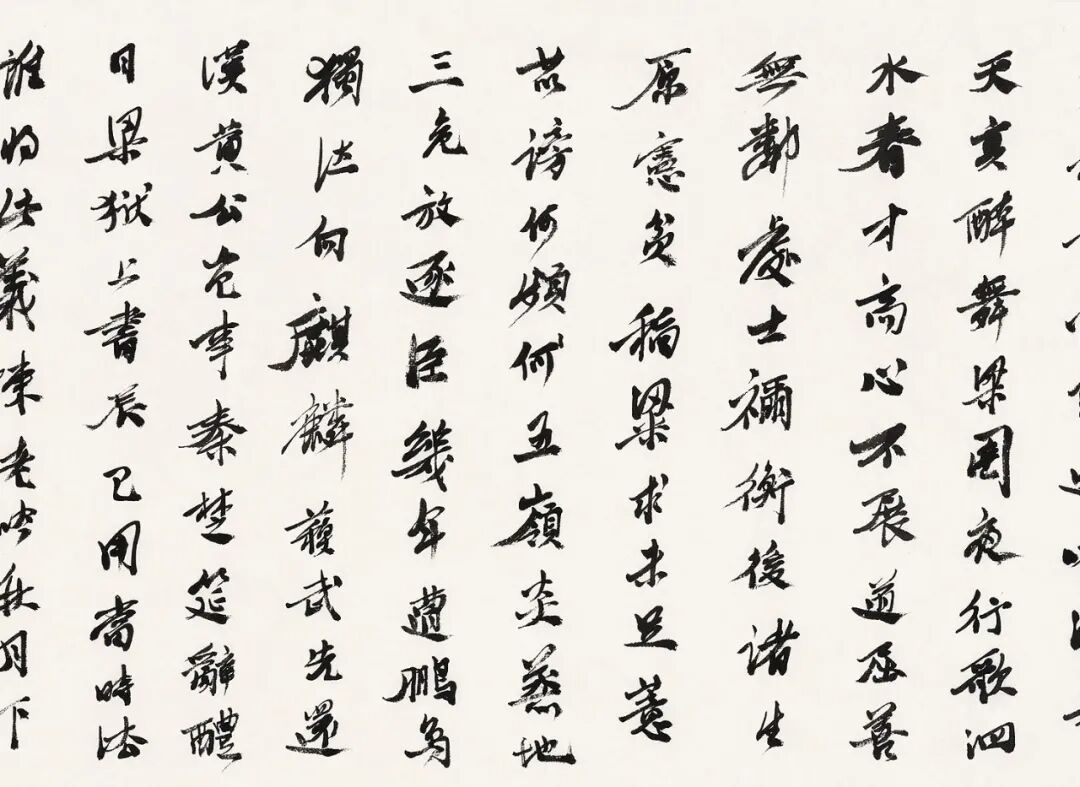 天真醉舞梁園夜行歌泗
水春才高心不展道屈善
無鄰處士禰衡後諸生
原憲貧稻粱求未足薏
苡謗何頻何五嶺炎蒸地
三危放逐臣幾年遭鵬鳥
獨泣向麒麟蘇武先還
漢黃公豈事秦楚筵辭醴
日梁獄上書辰已用當時法
誰將此義陳老吟秋月下